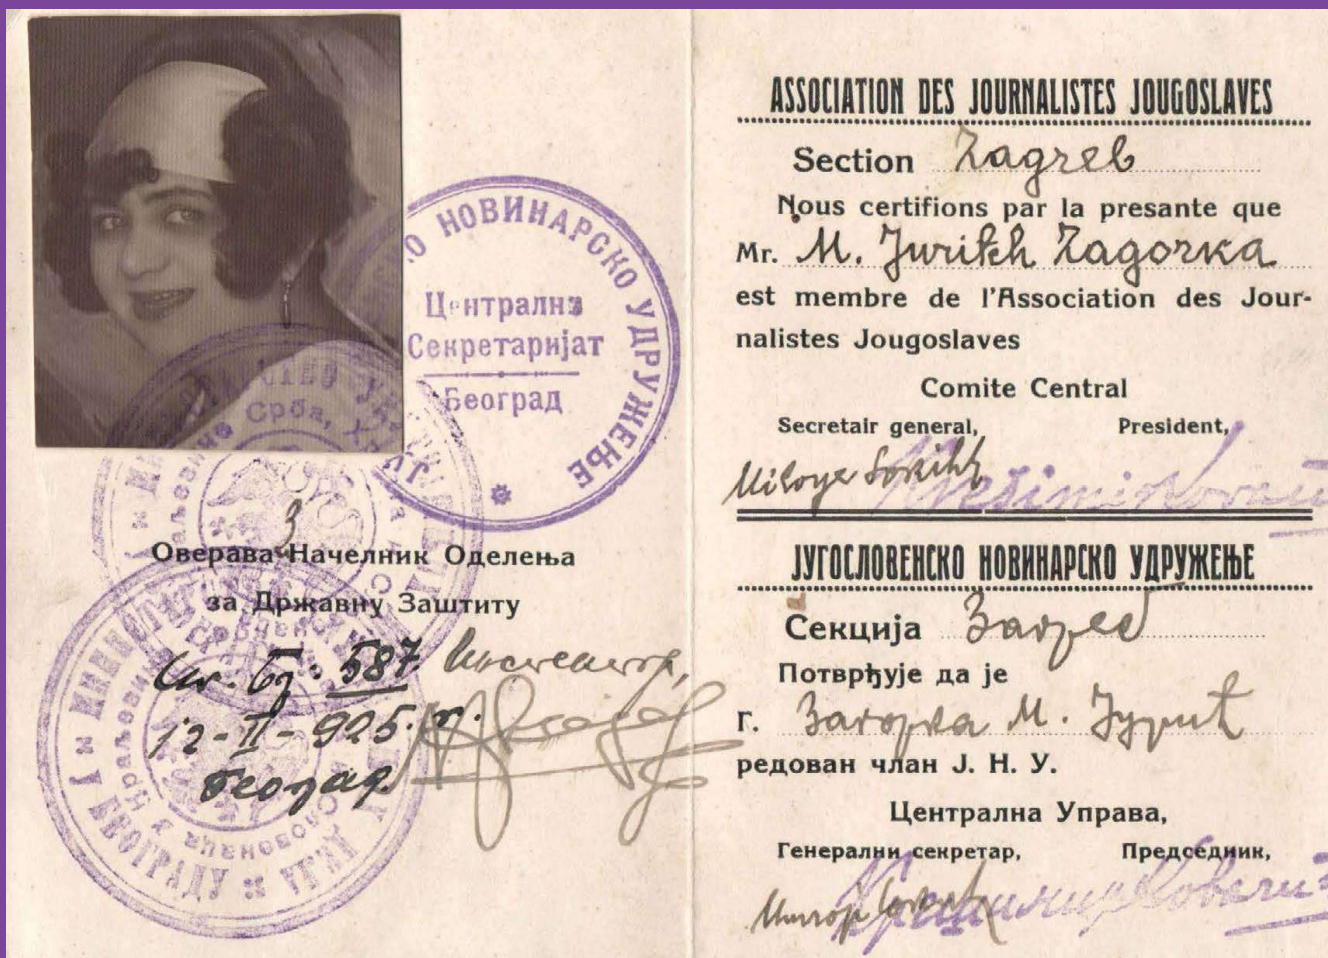 НОВИНАРСКО УДРУЖЕЊЕ
Централни
Секретаријат
Београд
Оверава Начелник Оделења
за Државну Заштиту
587
12-II-925. г.
Београд
ASSOCIATION DES JOURNALISTES JOUGOSLAVES
Section Zagreb
Nous certifions par la presante que
Mr. M. Jurikh Zagorka
est membre de l'Association des Jour-
nalistes Jougoslaves
Comite Central
Secretair general, President,
ЈУГОСЛОВЕНСКО НОВИНАРСКО УДРУЖЕЊЕ
Секција Загреб
Потврђује да је
г. Загорка М. Јурић
редован члан Ј. Н. У.
Централна Управа,
Генерални секретар, Председник,